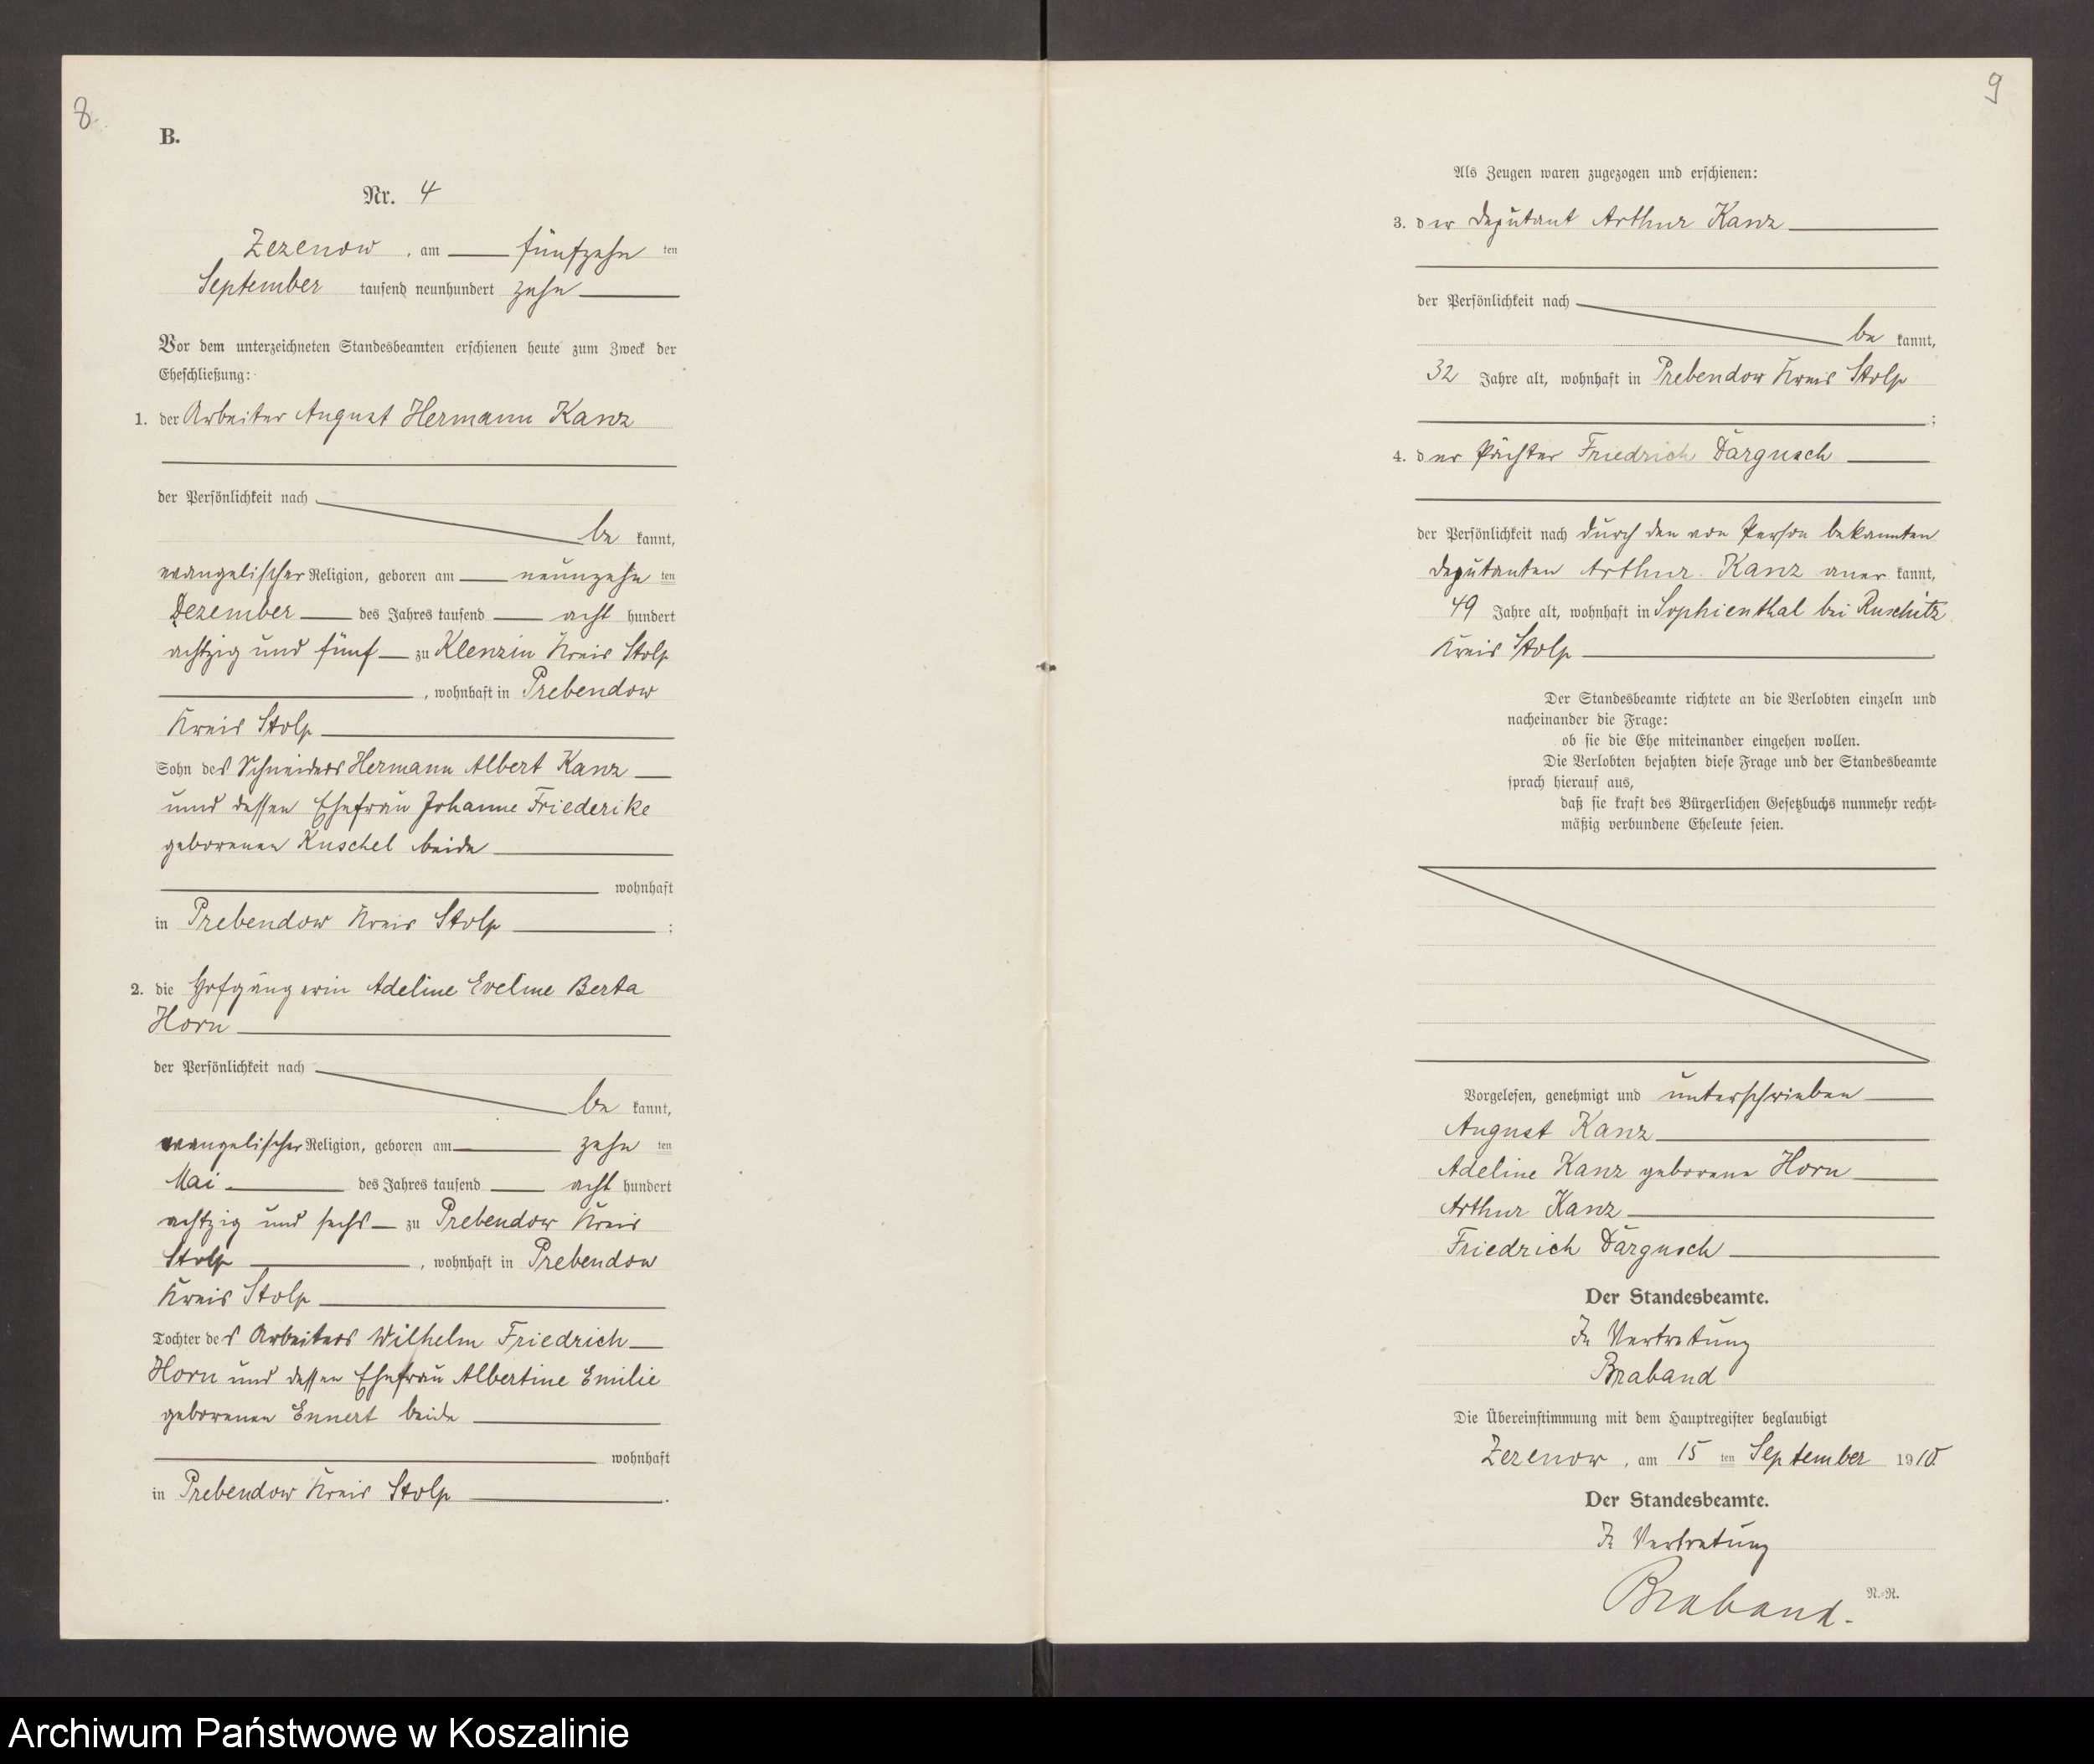 8.
B.
Nr. 4
Zezenow, am fünfzehn ten
September tausend neunhundert zehn
Vor dem unterzeichneten Standesbeamten erschienen heute zum Zweck der
Eheschließung:
1. der Arbeiter August Hermann Kanz
der Persönlichkeit nach
be kannt,
evangelischer Religion, geboren am neunzehn ten
Dezember des Jahres tausend acht hundert
achtzig und fünf zu Klenzin Kreis Stolp
, wohnhaft in Prebendow
Kreis Stolp
Sohn des Schneiders Hermann Albert Kanz
unnd dessen Ehefrau Johanne Friederike
geborenen Kuschel beide
wohnhaft
in Prebendow Kreis Stolp :
2. die Hofgängerin Adeline Eveline Berta
Horn
der Persönlichkeit nach
be kannt,
evangelischer Religion, geboren am zehn ten
Mai des Jahres tausend acht hundert
achtzig und sechs zu Prebendow Kreis
Stolp , wohnhaft in Prebendow
Kreis Stolp
Tochter des Arbeiters Wilhelm Friedrich
Horn und dessen Ehefrau Albertine Emilie
geborenen Ennert beide
wohnhaft
in Prebendow Kreis Stolp .
9
Als Zeugen waren zugezogen und erschienen:
3. der Deputant Arthur Kanz
der Persönlichkeit nach
be kannt,
32 Jahre alt, wohnhaft in Prebendow Kreis Stolp
;
4. der Pächter Friedrich Dargusch
der Persönlichkeit nach durch den von Person bekannten
Deputanten Arthur Kanz aner kannt,
49 Jahre alt, wohnhaft in Sophienthal bei Ruschütz
Kreis Stolp
Der Standesbeamte richtete an die Verlobten einzeln und
nacheinander die Frage:
ob sie die Ehe miteinander eingehen wollen.
Die Verlobten bejahten diese Frage und der Standesbeamte
sprach hierauf aus,
daß sie kraft des Bürgerlichen Gesetzbuchs nunmehr recht-
mäßig verbundene Eheleute seien.
Vorgelesen, genehmigt und unterschrieben
August Kanz
Adeline Kanz geborene Horn
Arthur Kanz
Friedrich Dargusch
Der Standesbeamte.
In Vertretung
Braband
Die Übereinstimmung mit dem Hauptregister beglaubigt
Zezenow, am 15 ten September 1910.
Der Standesbeamte.
In Vertretung
Braband.
N.-R.
Archiwum Państwowe w Koszalinie